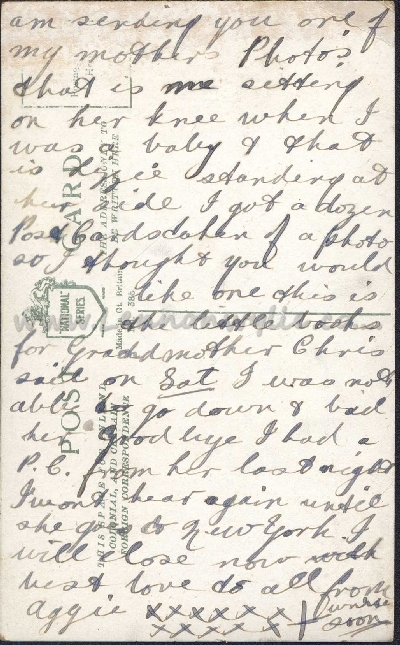 am sending you one of
my mothers Photo's
that is me setting
on her knee when I
was a baby & that
is standing at
her side I got a dozen
Post Cards taken of a photo
so I thought you would
like one this is
the little books
for Grandmother Chris
said on Sat I was not
able to go down & bid
her Goodbye I had a
P.C. from her last night
I wont hear again until
she gets to New York. I
will close now with
best love to all from
Aggie xxxxxx
xxxxxx
write
soon
POST CARD
THE ADDRESS ONLY TO
BE WRITTEN HERE
NATIONAL
SERIES
Made in Gt. Britain
THIS SPACE
COLONIAL
FOREIGN CORRESPONDENCE